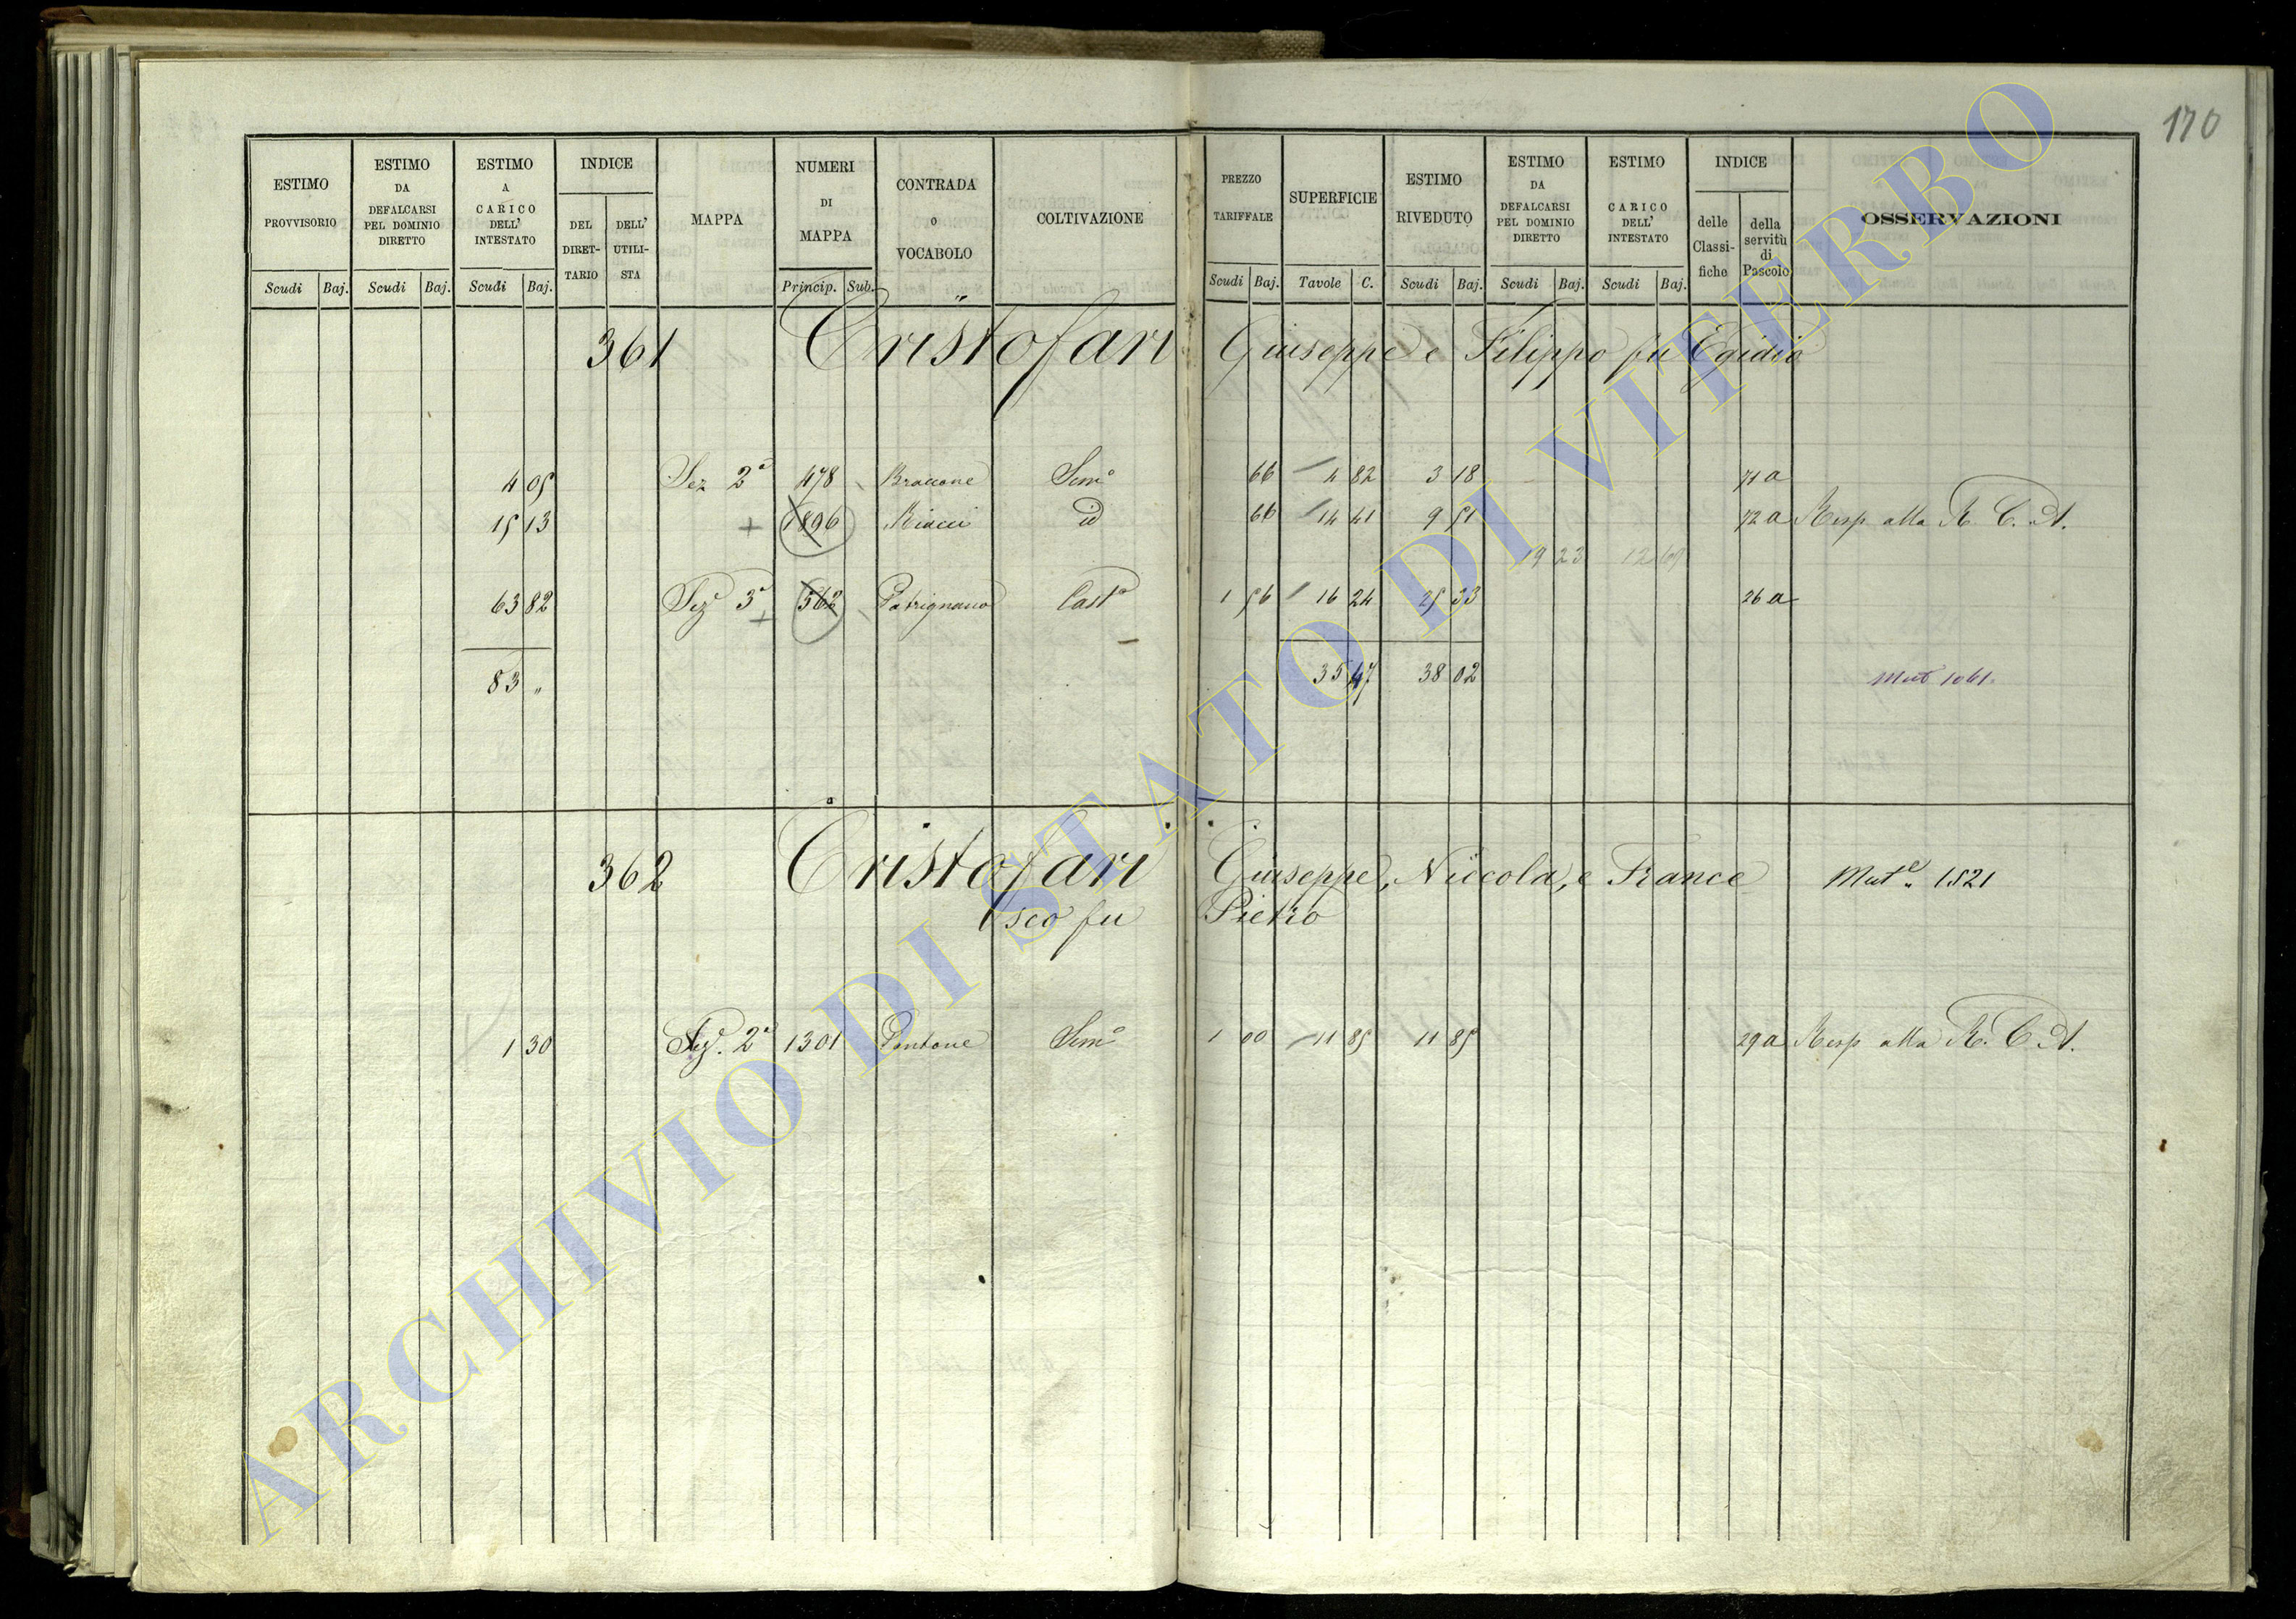 170
ESTIMO PROVVISORIO ESTIMO DA DEFALCARSI PEL DOMINIO DIRETTO ESTIMO A CARICO DELL' INTESTATO INDICE DEL DIRET-TARIO DELL' UTILI-STA MAPPA NUMERI DI MAPPA CONTRADA O VOCABOLO COLTIVAZIONE PREZZO TARIFFALE SUPERFICIE ESTIMO RIVEDUTO ESTIMO DA DEFALCARSI PEL DOMINIO DIRETTO ESTIMO A CARICO DELL' INTESTATO INDICE delle Classi-fiche della servitù di Pascolo OSSERVAZIONI
Scudi Baj. Scudi Baj. Scudi Baj. Princip. Sub. Scudi Baj. Tavole C. Scudi Baj. Scudi Baj. Scudi Baj.
361 Cristofari Giuseppe e Filippo fu Egidio
4 05 Sez 2ª 478 Braccone Semo 66 4 82 3 18 71 a
15 13 + 1896 id 66 14 41 9 51 72 a Resp alla R. C. A.
19 23
63 82 Sez 3ª + 562 Patrignano Casto 1 56 16 24 25 33 26 a
83 " 35 47 38 02 Mut 1061.
362 Cristofari Giuseppe, Niccola, e France Mute. 1521
sco fu Pietro
1 30 Sez. 2ª 1301 Pontone Semo 1 00 11 85 11 85 29 a Resp alla R. C. A.
ARCHIVIO DI STATO DI VITERBO